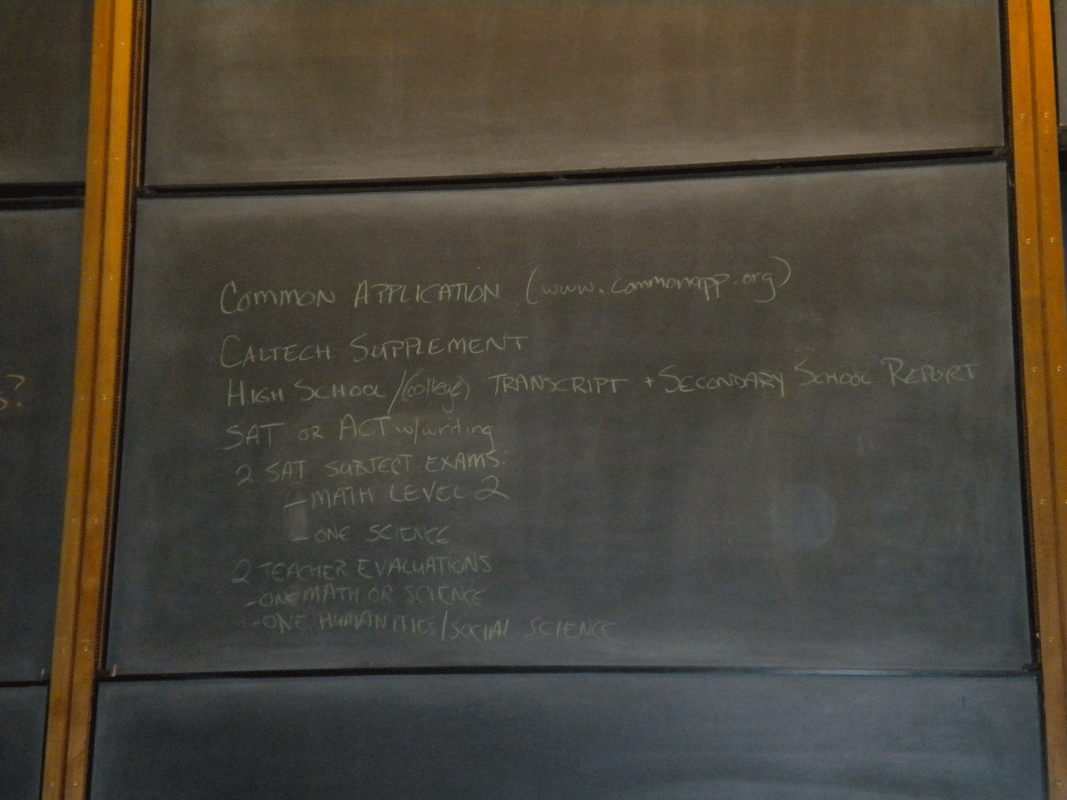 Common Application (www.commonapp.org)
Caltech Supplement
High School/(college) Transcript + Secondary School Report
SAT or ACT w/writing
2 SAT SUBJECT EXAMS:
- MATH LEVEL 2
- ONE SCIENCE
2 TEACHER EVALUATIONS
- ONE MATH OR SCIENCE
- ONE HUMANITIES/SOCIAL SCIENCE